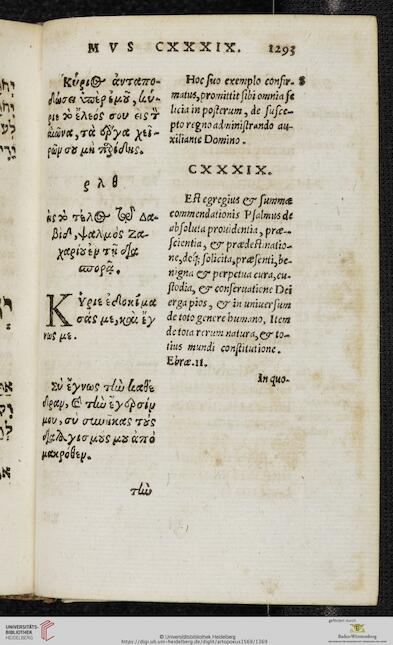 MVS CXXXIX. 1293
Κύριος ἀνταπο-
δώσει ὑπὲρ ἐμοῦ, κύ-
ριε τὸ ἔλεός σου εἰς τὸν
αἰῶνα, τὰ ἔργα χει-
ρῶν σου μὴ παρίδῃς.
ρ λ θ
εἰς τὸ τέλος τῷ Δα-
βὶδ, ψαλμὸς Ζα-
χαρίου ἐν τῇ δια
σπορᾷ.
Κύριε ἐδοκίμα
σάς με, καὶ ἔγ
νως με.
Σὺ ἔγνως τὴν καθέ
δραν, καὶ τὴν ἔγερσίν
μου, σὺ συνῆκας τοὺς
διαλογισμούς μου ἀπὸ
μακρόθεν.
τὴν
Hoc suo exemplo confir-
matus, promittit sibi omnia fe
licia in posterum, de susce-
pto regno administrando au-
xiliante Domino.
CXXXIX.
Est egregius & summæ
commendationis Psalmus de
absoluta prouidentia, præ-
scientia, & prædestinatio-
ne, deq; solicita, præsenti, be-
nigna & perpetua cura, cu-
stodia, & conseruatione Dei
erga pios, & in uniuersum
de toto genere humano. Item
de tota rerum natura, & to-
tius mundi constitutione.
Ebræ. 11.
In quo-
UNIVERSITÄTS-
BIBLIOTHEK
HEIDELBERG
© Universitätsbibliothek Heidelberg
https://digi.ub.uni-heidelberg.de/diglit/artopoeus1569/1369
gefördert durch
Baden-Württemberg